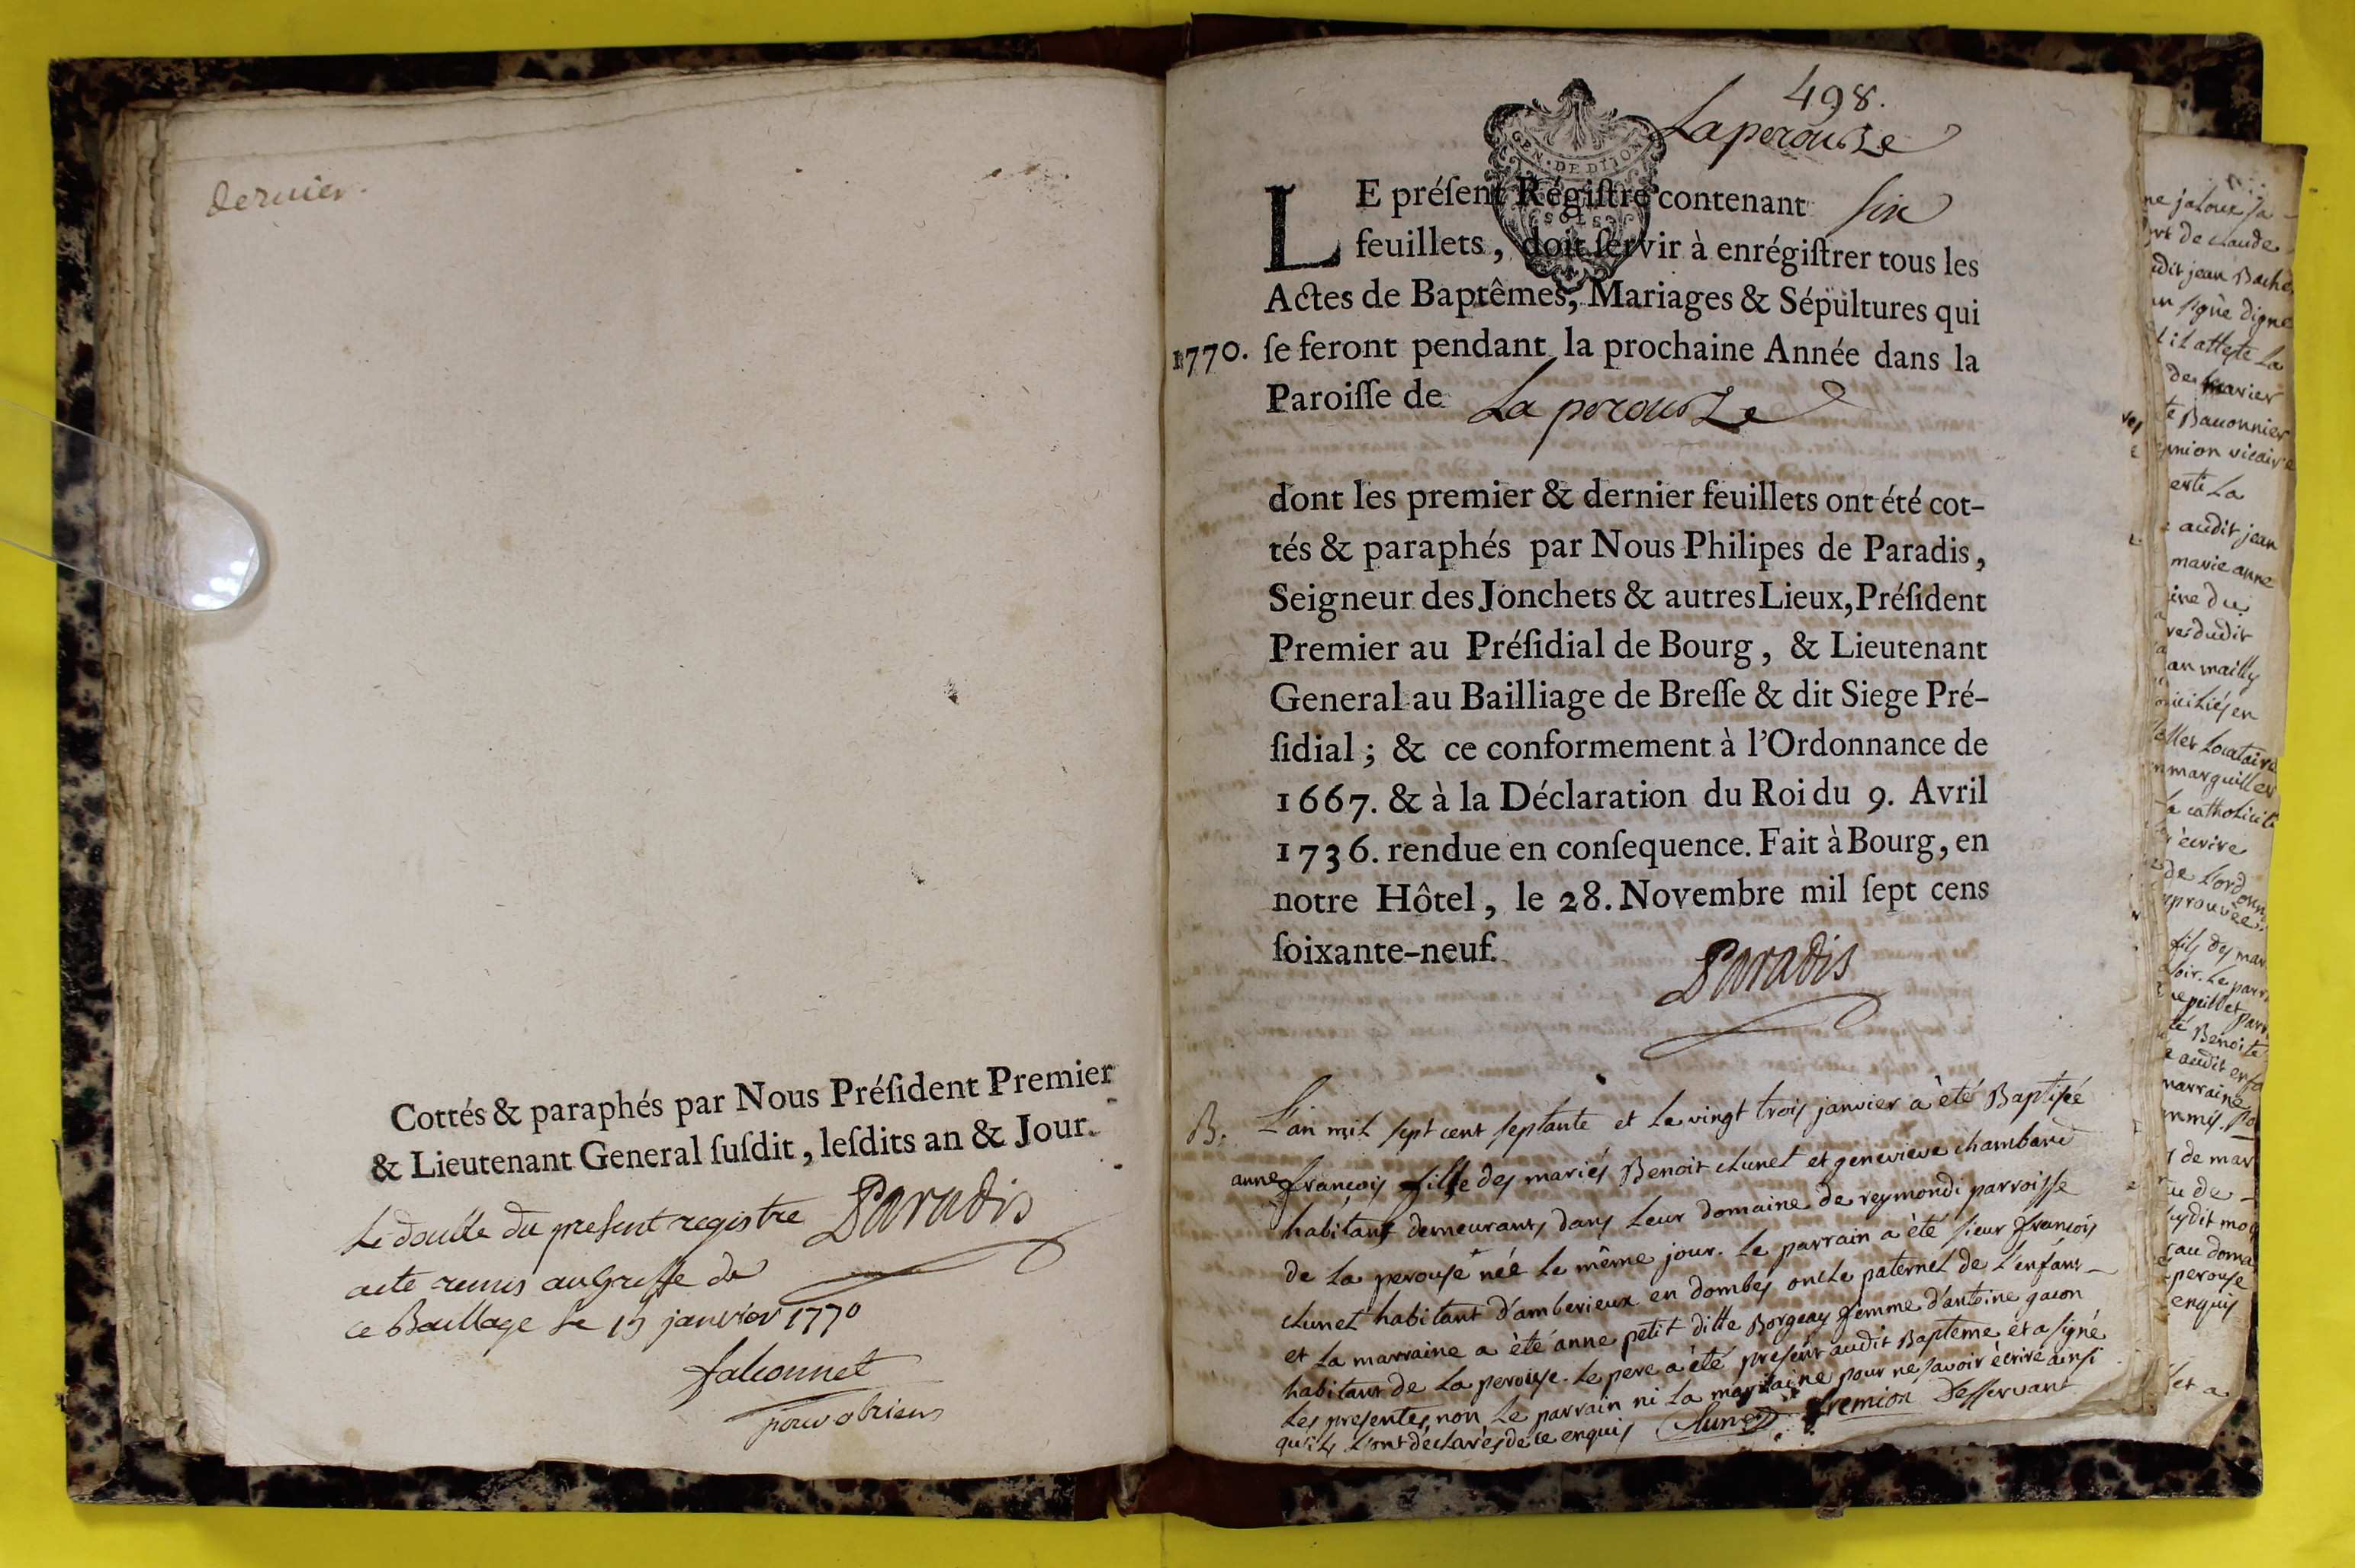 dernier.
Cottés & paraphés par Nous Préſident Premier
& Lieutenant General ſuſdit, leſdits an & Jour.
Le double du present registre Paradis
acté remis au Greffe de
ce Bailliage le janvier 1770
falconnet
498.
Laperouse
GEN. DE DIJON
SOLS
LE préſent Régiſtre contenant six
feuillets, doit ſervir à enrégiſtrer tous les
Actes de Baptêmes, Mariages & Sépultures qui
1770. ſe feront pendant la prochaine Année dans la
Paroiſſe de La perouse
dont les premier & dernier feuillets ont été cot-
tés & paraphés par Nous Philipes de Paradis,
Seigneur des Jonchets & autres Lieux, Préſident
Premier au Préſidial de Bourg, & Lieutenant
General au Bailliage de Breſſe & dit Siege Pré-
ſidial; & ce conformement à l'Ordonnance de
1667. & à la Déclaration du Roi du 9. Avril
1736. rendue en conſequence. Fait à Bourg, en
notre Hôtel, le 28. Novembre mil ſept cens
ſoixante-neuf.
Paradis
B. L'an mil sept cent septante et le vingt trois janvier à été Baptisée
anne françois fille des mariés Benoit chunel et genevieve chambard
habitans demeurants dans leur domaine de reymondi parroisse
de La perouse née le même jour. le parrain à été sieur françois
chunel habitant d'amberieux en dombes oncle paternel de l'enfant
et la marraine a été anne petit ditte Borgeay femme d'antoine gacon
habitans de La perouse. le pere a été présent audit Baptême et a signé
les presentes, non le parrain ni la marraine pour ne savoir écrire ainsi
qu'ils l'ont déclarés de ce enquis Chunel fremion Desservant
de claude
udit jean
signé digne
il atteste la
de
Baconnier
vicaire
audit jean
marie anne
dudit
mailly
locataire
marguillier
la catholicité
écrire
de l'ordonn
aprouvée
fils des mar
Benoite
audit
marraine
de mar
au doma
perouse
enquis
et a